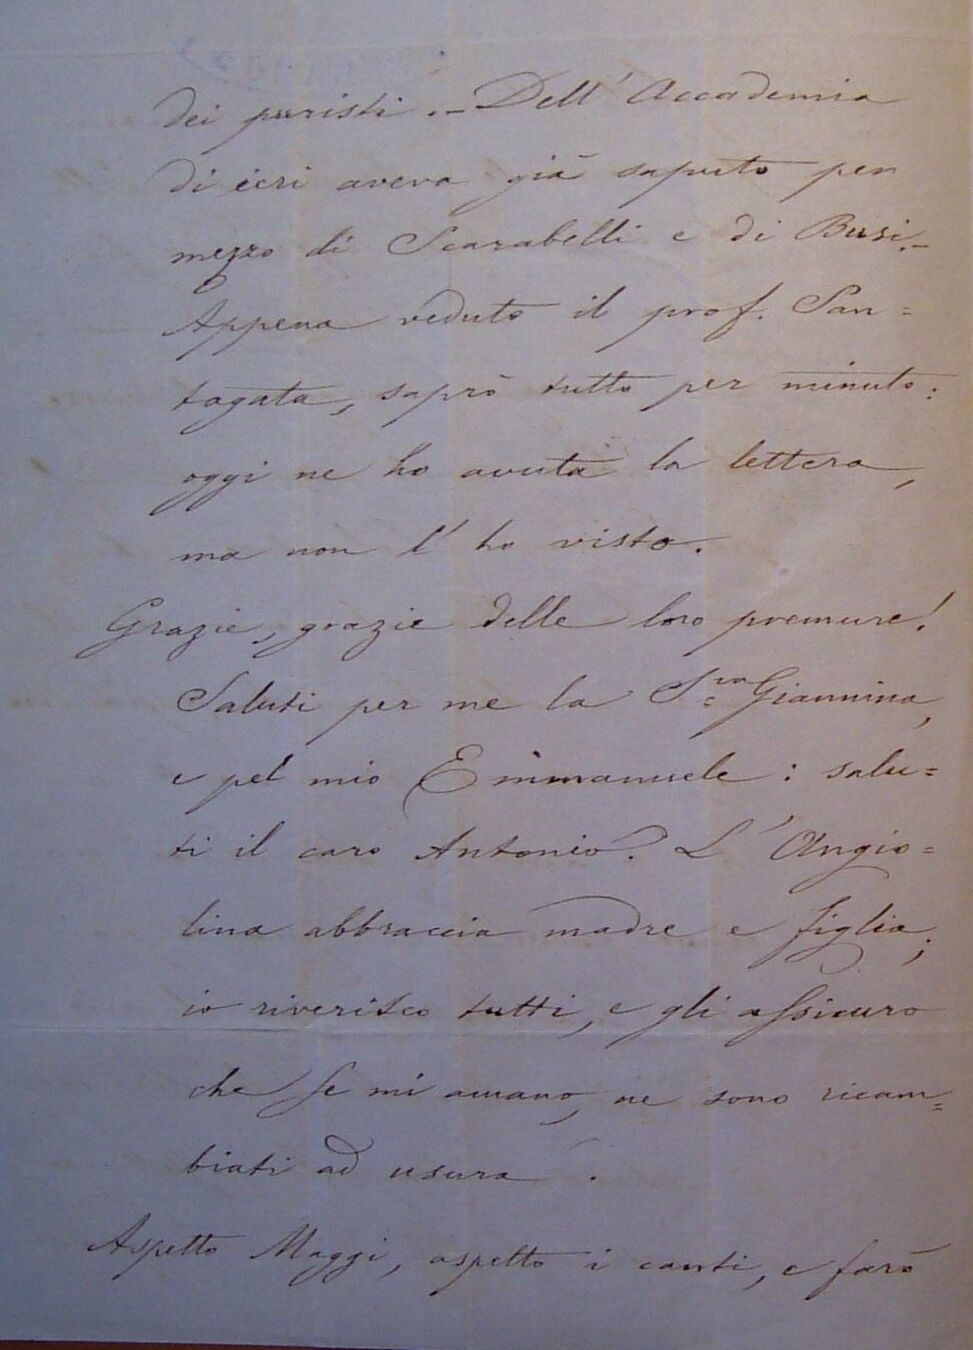 dei puristi. – Dell'Accademia
di ieri aveva già saputo per
mezzo di Scarabelli e di Busi. –
Appena veduto il prof. San=
tagata, saprò tutto per minuto:
oggi ne ho avuta la lettera,
ma non l'ho visto.
Grazie, grazie delle loro premure!
Saluti per me la S.ra Giannina,
e pel mio Emmanuele: salu=
ti il caro Antonio. L'Angio=
lina abbraccia madre e figlia;
io riverisco tutti, e gli assicuro
che se mi amano, ne sono ricam=
biati ad usura.
Aspetto Maggi, aspetto i canti, e farò